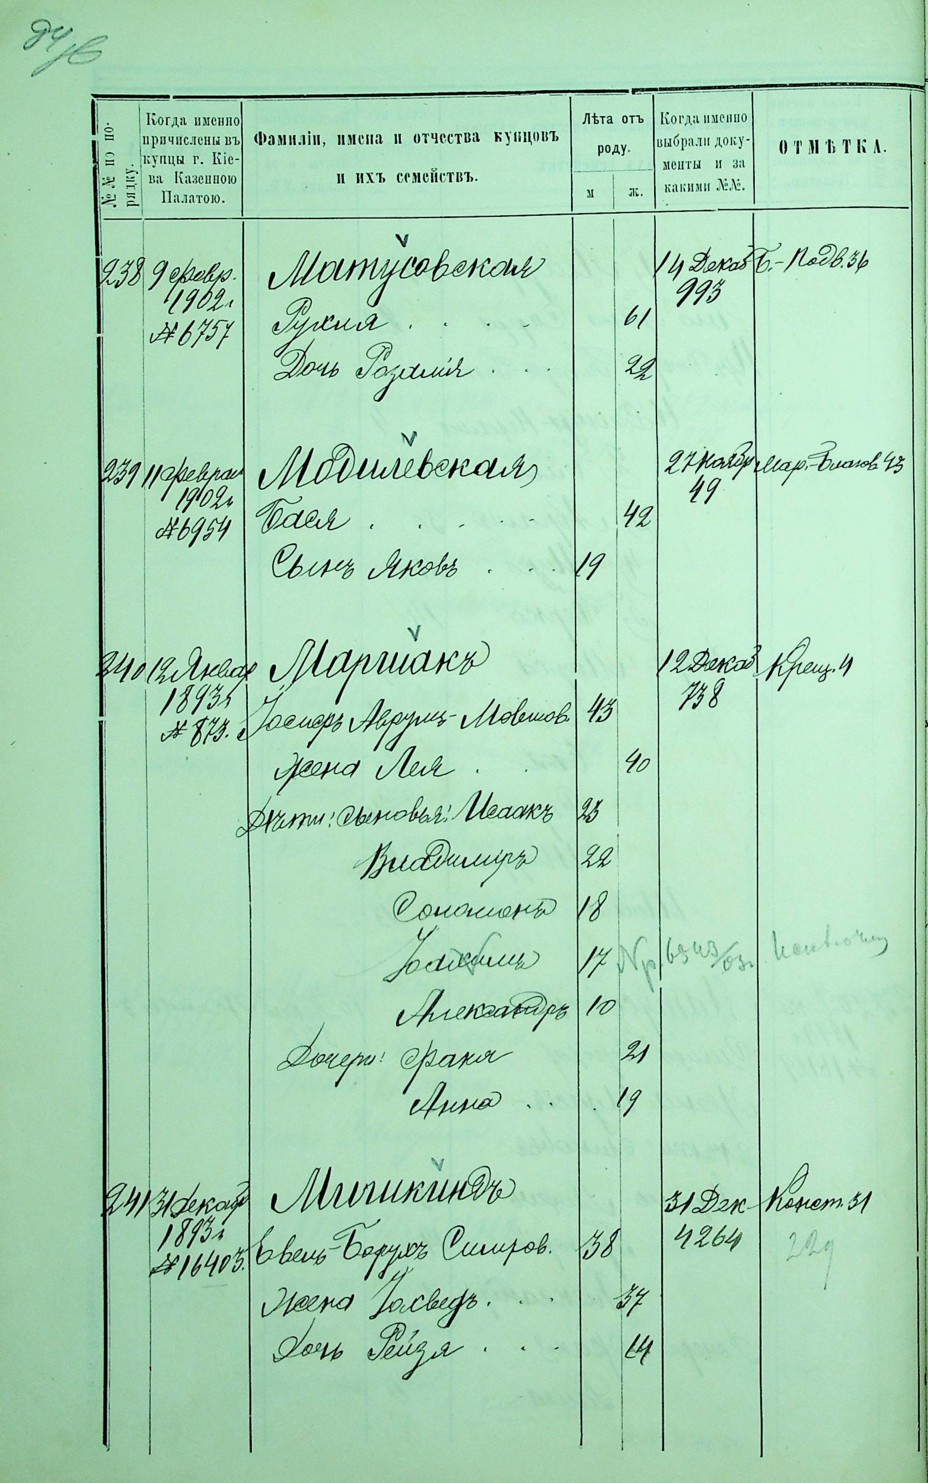 №№ по по-
рядку.
Когда именно
причислены въ
купцы г. Кіе-
ва Казенною
Палатою.
Фамиліи, имена и отчества купцовъ
и ихъ семействъ.
Лѣта отъ
роду.
м
ж.
Когда именно
выбрали доку-
менты и за
какими №№.
ОТМѢТКА.
238 9 февр. Матусовская 14 Декаб Б.-Подв. 36
1902 г 993
№ 6757 Рухля 61
Дочь Розалія 22
239 11 феврал Модилевская 27 Ноябр Мар.-Благов. 43
1902 г 49
№ 6954 Бася 42
Сынъ Яковъ 19
240 12 Январ Маршакъ 12 Декаб Крещ. 4
1893 г 738
№ 873. Іосифъ Аврумъ-Мовшов. 43
жена Лея 40
Дѣти: сыновья: Исаакъ 23
Владимиръ 22
Соломонъ 18
Іоахимъ 17 6343/03г.
Александръ 10
Дочери: Фаня 21
Анна 19
241 31 Декабр Мичикиндъ 31 Дек Конст. 31
1893 г 4264 229
№ 16403. Евель-Борухъ 38
Жена Іохведъ 37
Дочь Рейзя 14